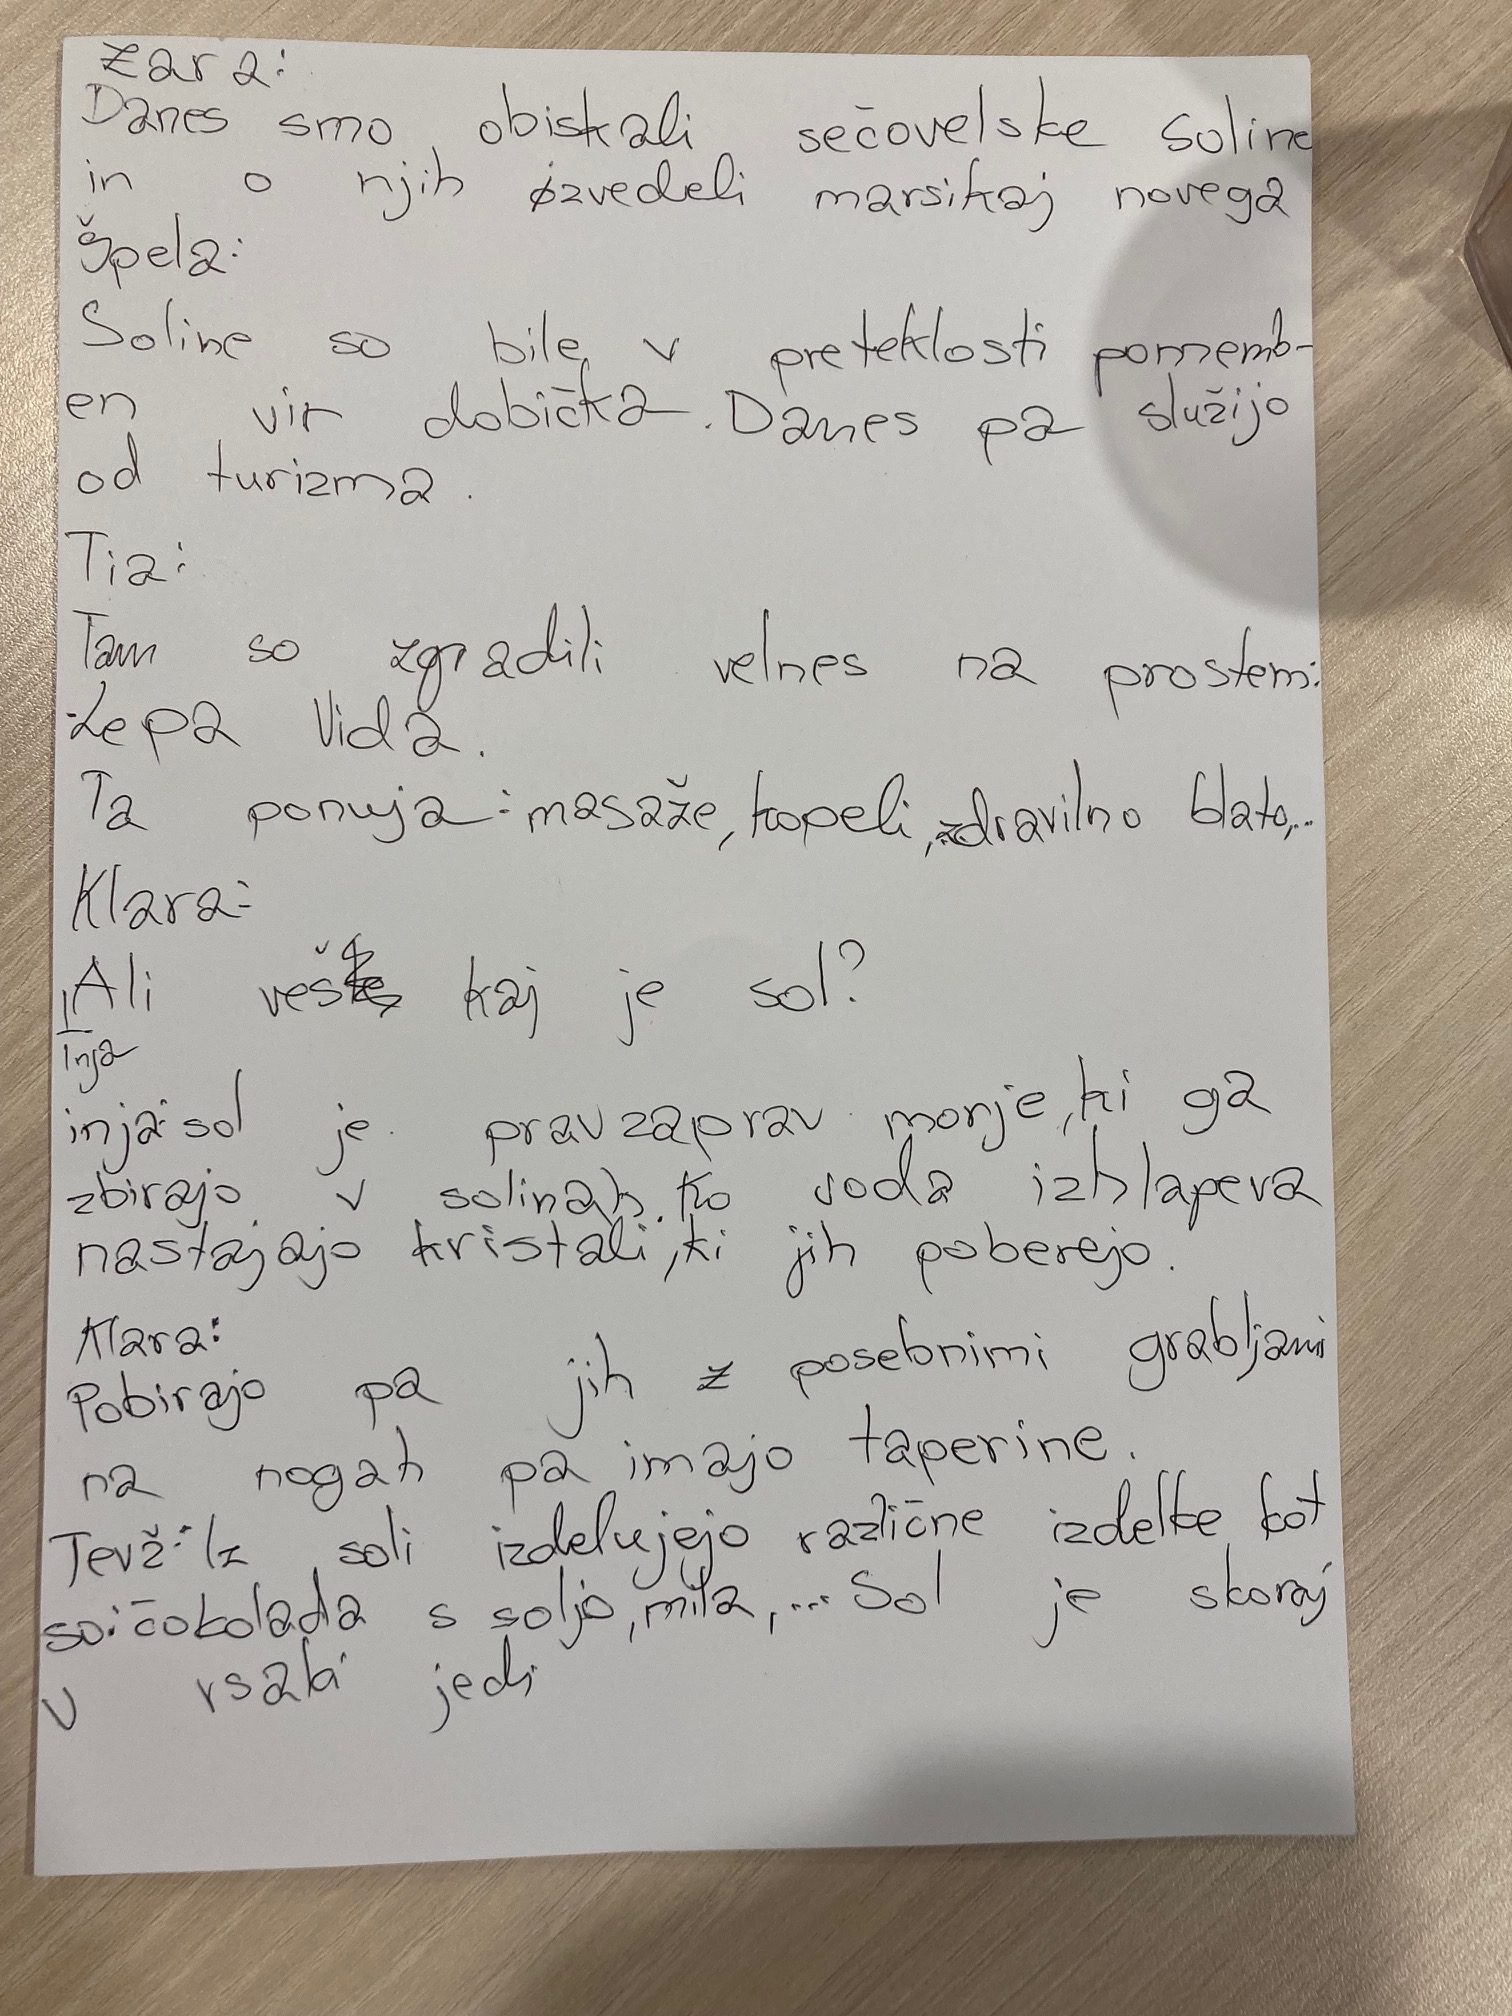 Zara:
Danes smo obiskali sečovelske soline
in o njih izvedeli marsikaj novega
Špela:
Soline so bile v preteklosti pomemb-
en vir dobička. Danes pa služijo
od turizma.
Tia:
Tam so zgradili velnes na prostem:
Lepa Vida.
Ta ponuja: masaže, kopeli, zdravilno blato,...
Klara:
Ali veš kaj je sol?
Inja
inja: sol je pravzaprav morje, ki ga
zbirajo v solinah. Ko voda izhlapeva
nastajajo kristali, ki jih poberejo.
Klara:
Pobirajo pa jih z posebnimi grabljami
na nogah pa imajo taperine.
Tevž: Iz soli izdelujejo različne izdelke kot
so: čokolada s soljo, mila,... Sol je skoraj
v vsaki jedi